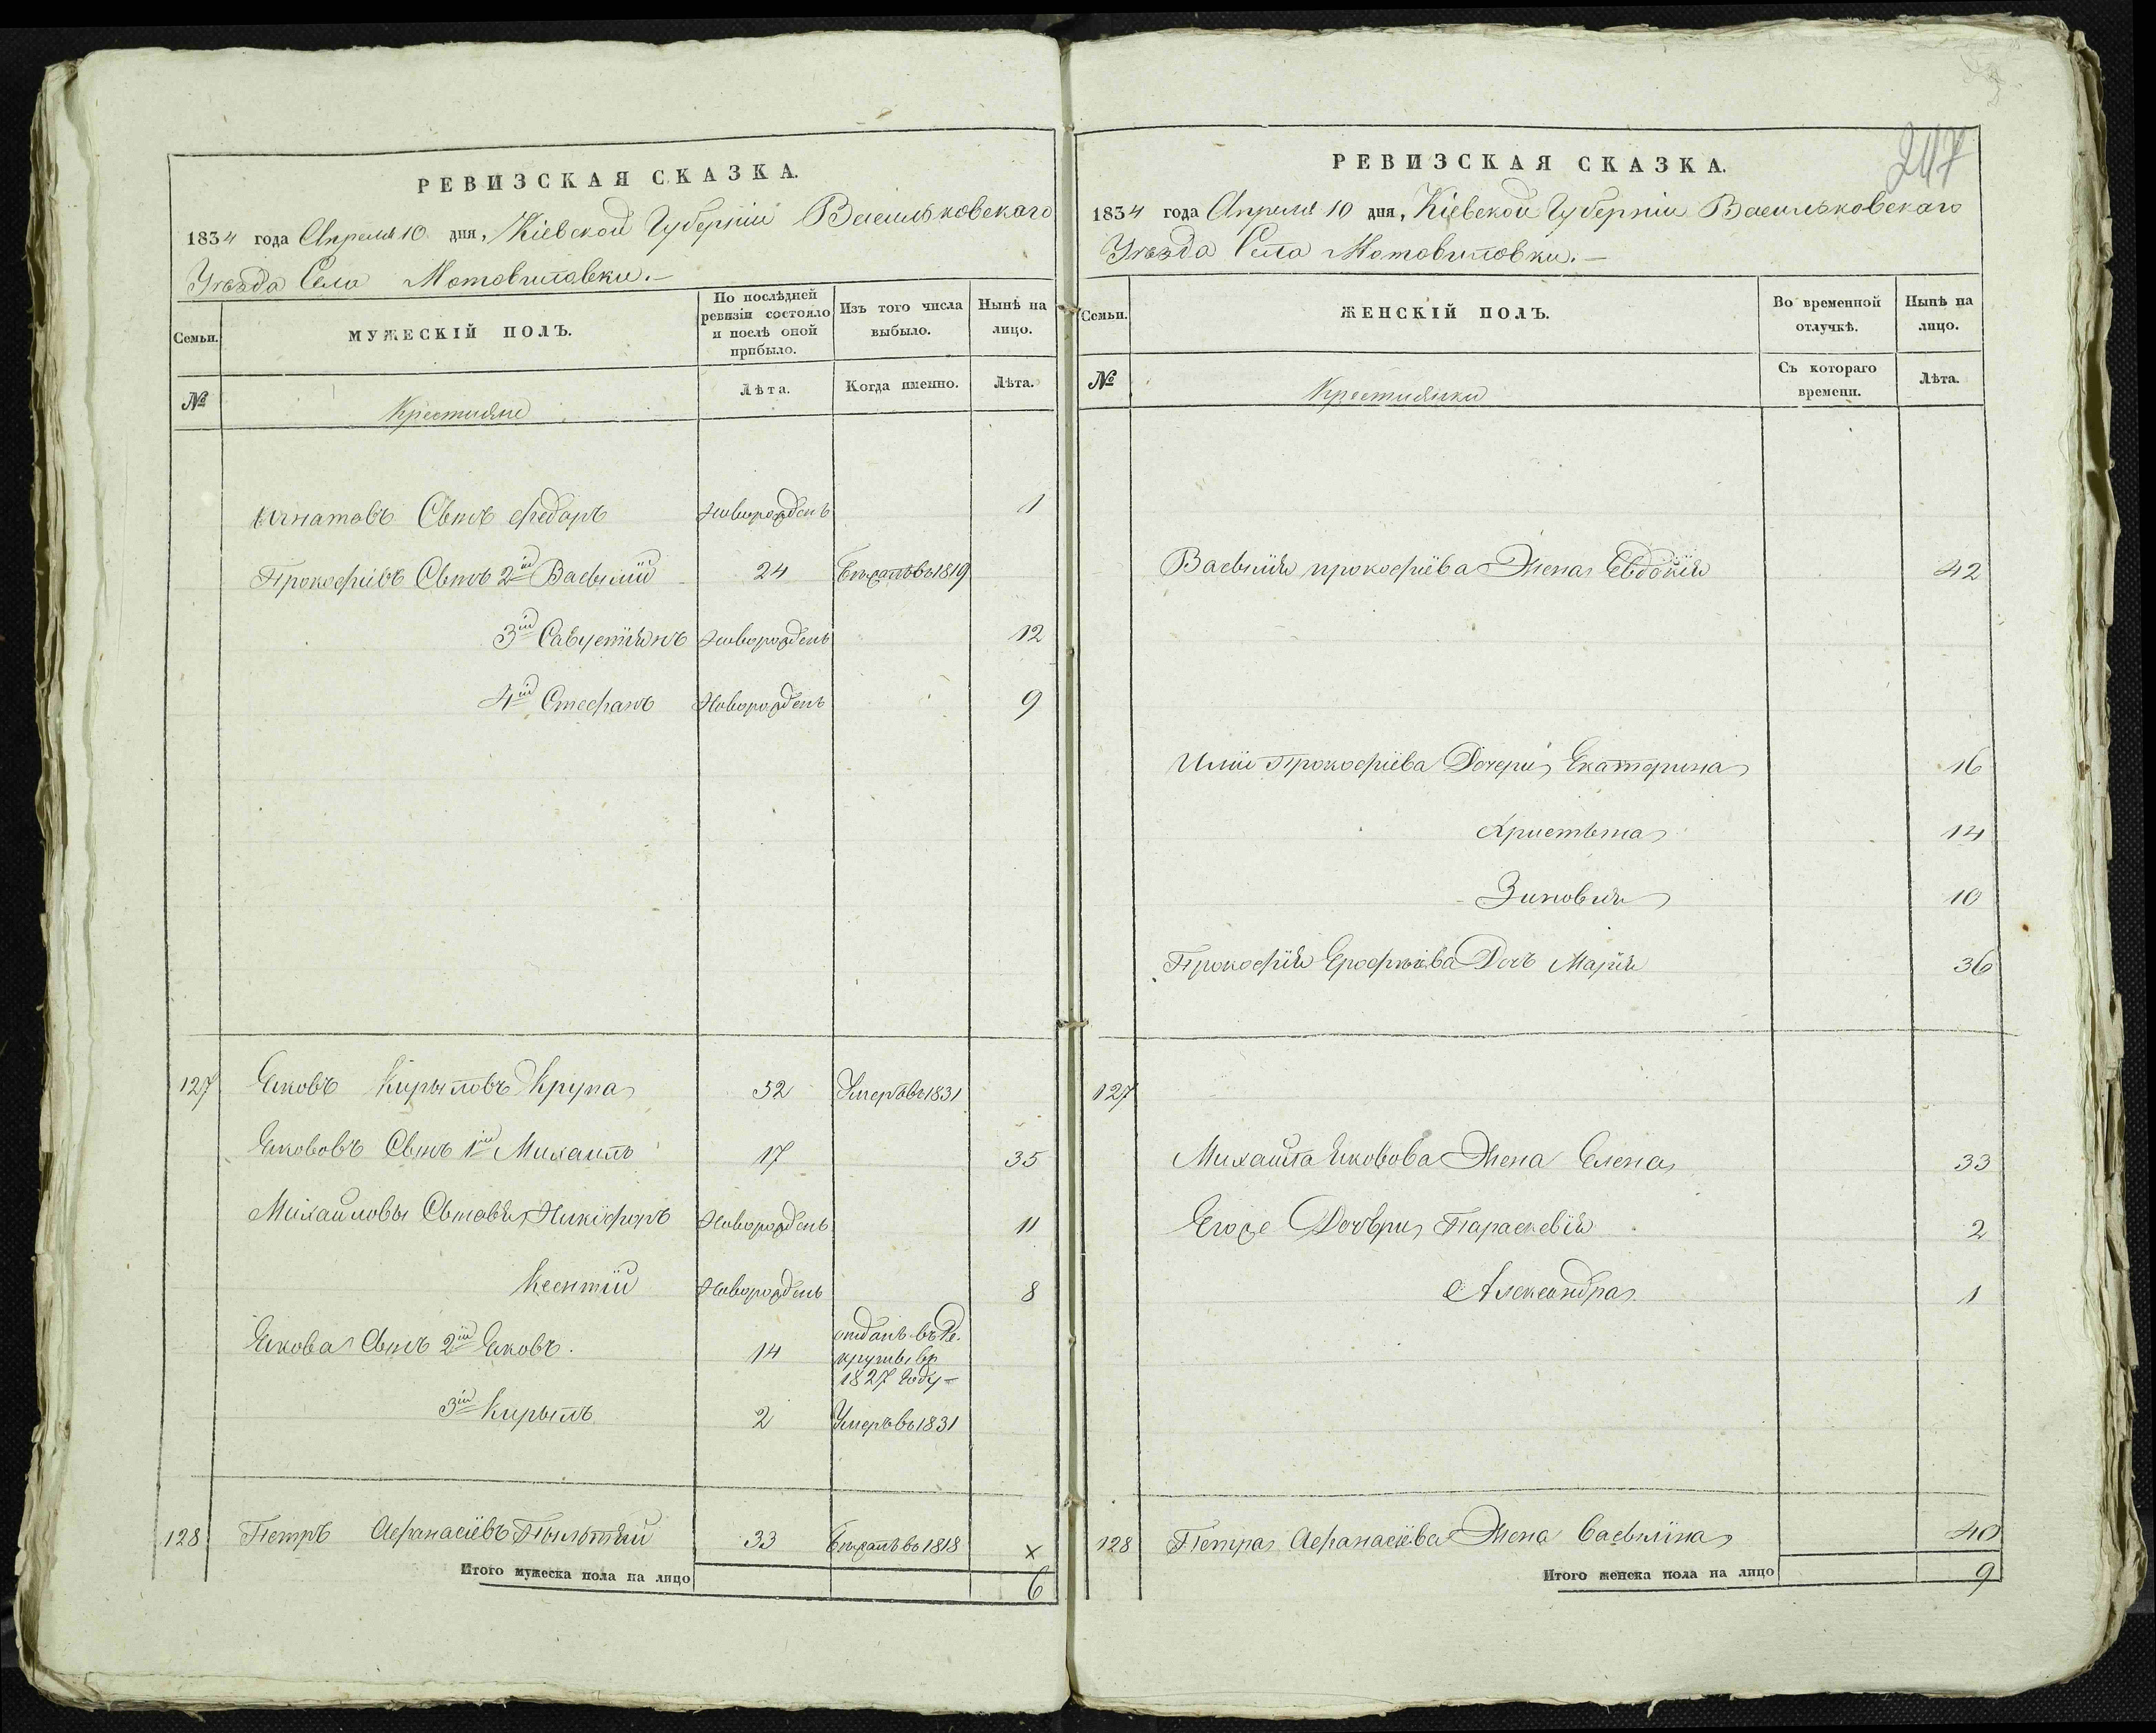 РЕВИЗСКАЯ СКАЗКА.
1834 года Апреля 10 дня, Кіевской Губерніи Васильковскаго
Уезда Села Мотовиловки.—
Семьи.
МУЖЕСКІЙ ПОЛЪ.
По послѣдней ревизіи состояло и послѣ оной прибыло.
Изъ того числа выбыло.
Нынѣ на лицо.
№
Крестияне
Лѣта.
Когда именно.
Лѣта.
Игнатовъ Сынъ Федоръ новорожденъ 1
Прокофіевъ Сынъ 2ій Васылій 24 Бежалъ въ 1819
3ій новорожденъ 12
4ій Стефанъ Новорожденъ 9
127 Яковъ Кирыловъ Крупа 52 Умеръ въ 1831
Якововъ Сынъ 1ій Михаилъ 17 35
Михайловы Сыновя Никіфоръ Новорожденъ 11
Новорожденъ 8
Якова Сынъ 2ій Яковъ. 14 отданъ въ Ре-
круты въ
1827 Году—
3ій Кирылъ 2 Умеръ въ 1831
128 Петръ Афанасіевъ 33 Бежалъ въ 1818 ×
Итого мужеска пола на лицо 6
РЕВИЗСКАЯ СКАЗКА.
247
1834 года Апреля 10 дня, Кіевской Губерніи Васильковскаго
Уезда Села Мотовиловки.—
Семьи.
ЖЕНСКІЙ ПОЛЪ.
Во временной отлучкѣ.
Нынѣ на лицо.
№
Крестиянки
Съ котораго времени.
Лѣта.
Васылия прокофіева Жена Евдокія 42
Иліи Прокофіева Дочери Екатерина 16
Христына 14
Зиновия 10
Прокофія Дочь Марія 36
127
Михайла Яковова Жена Елена 33
Егоже Дочери Параскевія 2
Александра 1
128 Петра Афанасіева Жена 40
Итого женска пола на лицо 9